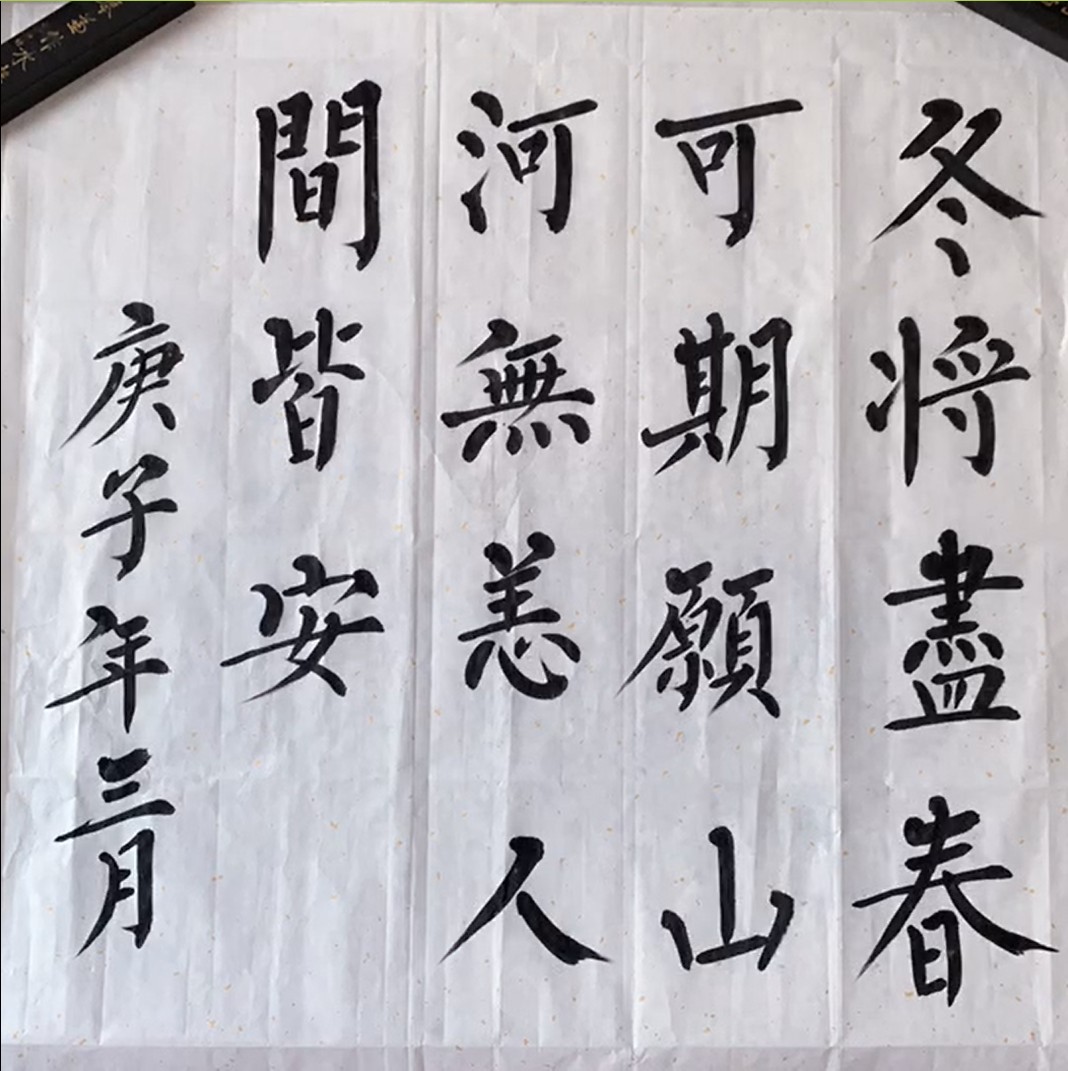 冬将盡春
可期願山
河無恙人
間皆安
庚子年三月